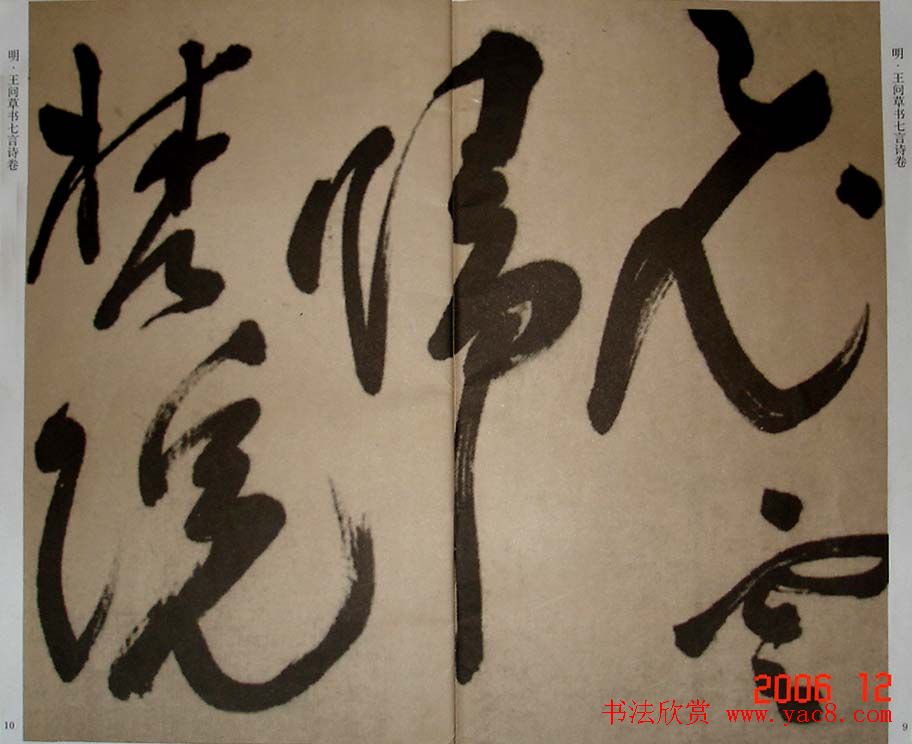 明·王问草书七言诗卷
空
歸
院
明·王问草书七言诗卷
10
9
2006 12
书法欣赏 www.yac8.com